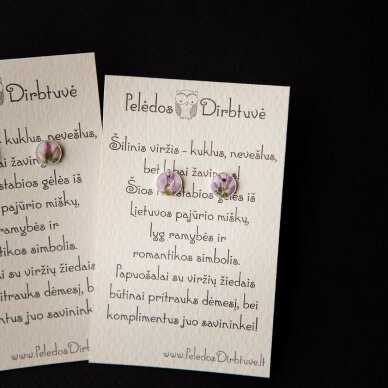 Dirbtuvė
kuklus, nevešlus,
žavingi
gėlės iš
pajūrio miškų,
ramybės ir
simbolis.
su viržių žiedais
pritrauks dėmesį, bei
juo savininkei!
www.PelėdosDirb
Pelėdos Dirbtuvė
Šilinis viržis - kuklus, nevešlus,
bet labai žavingas!
Šios nuostabios gėlės iš
Lietuvos pajūrio miškų,
lyg ramybės ir
romantikos simbolis.
Papuošalai su viržių žiedais
būtinai pritrauks dėmesį, bei
komplimentus juo savininkei!
www.PelėdosDirbtuve.lt